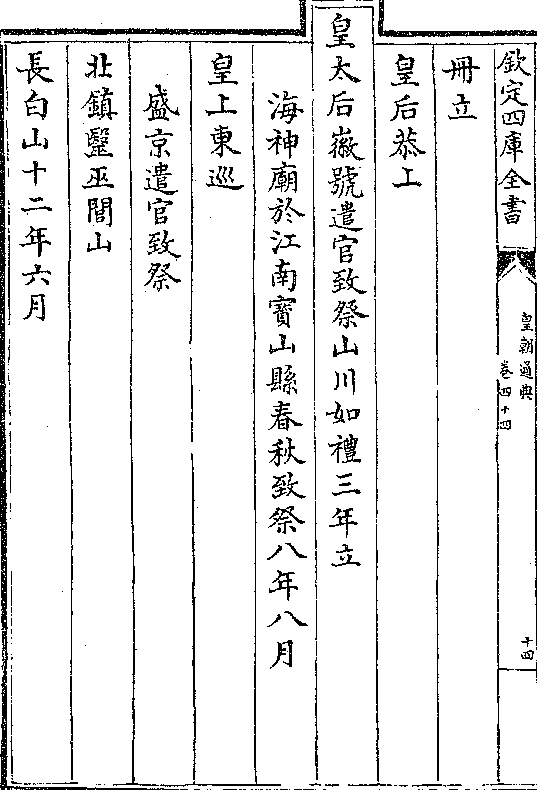 欽定四庫全書
皇朝通典
卷四十四
十四
冊立
皇后恭上
皇太后徽號遣官致祭山川如禮三年立
海神廟於江南寳山縣春秋致祭八年八月
皇上東巡
盛京遣官致祭
北鎮毉巫閭山
長白山十二年六月